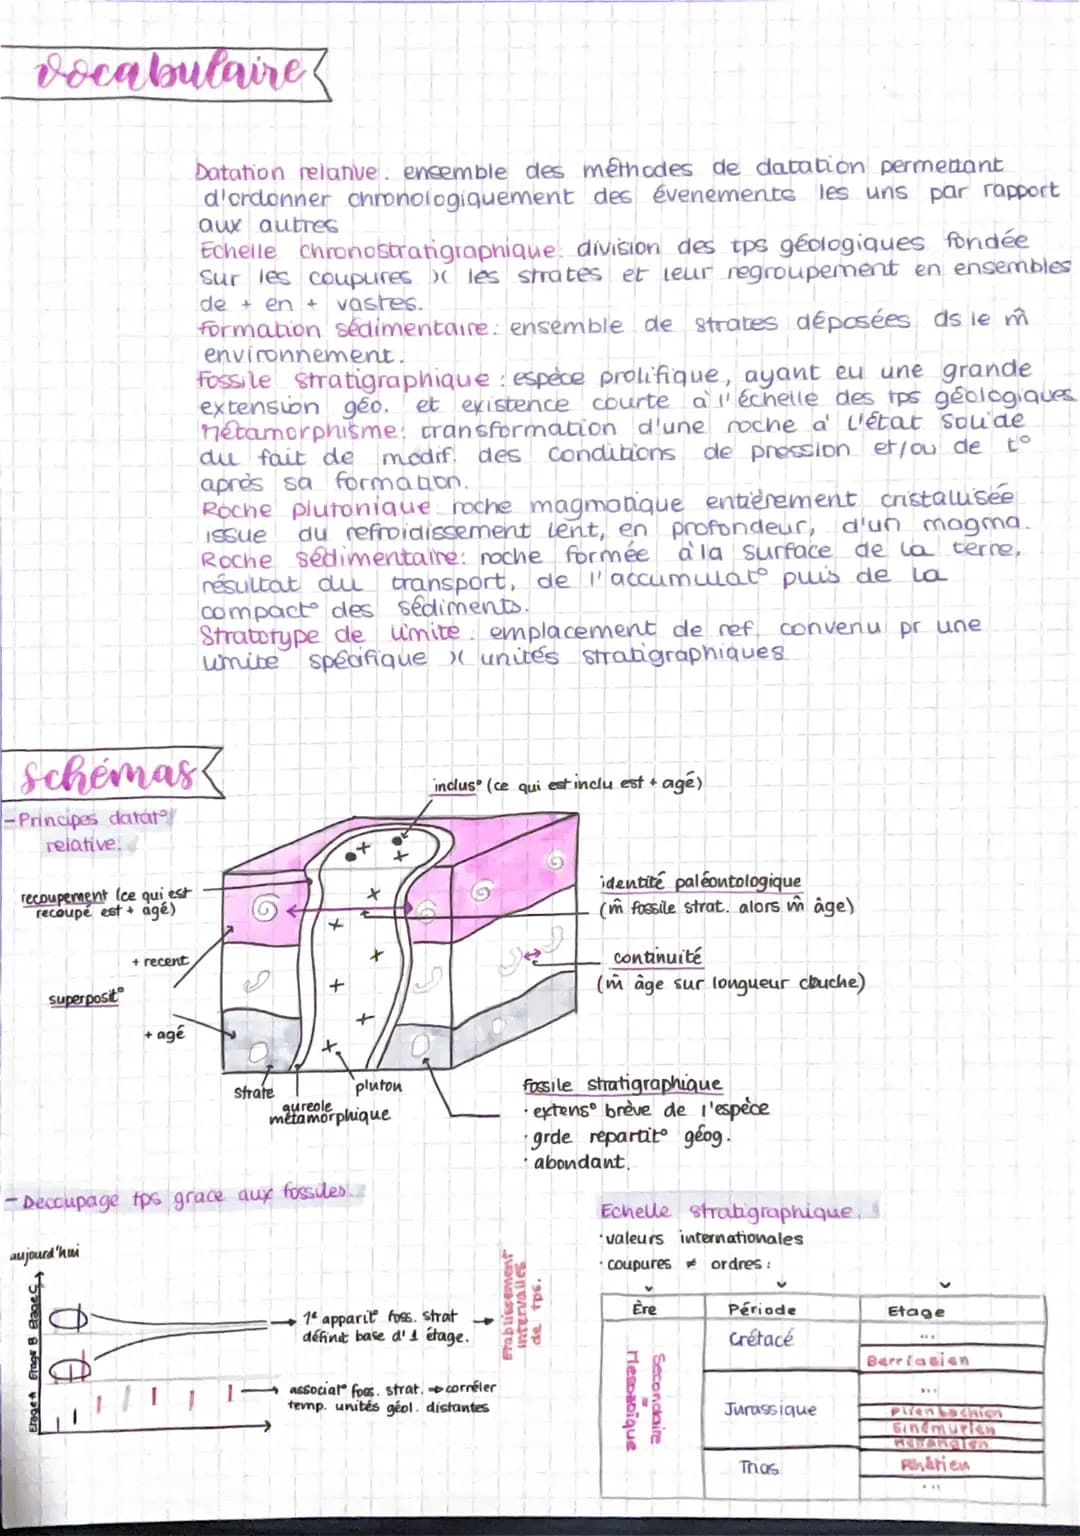 vocabulaire
Datation relative. ensemble des méthodes de datation permettant
d'ordonner chronologiquement des évenements les uns par rapport
aux autres
Echelle chronostratigraphique: division des tps géologiques fondée
sur les coupures )( les strates et leur regroupement en ensembles
de + en + vastes.
formation sédimentaire: ensemble de strates déposées ds le m̂
environnement.
Fossile stratigraphique : espèce prolifique, ayant eu une grande
extension géo. et existence courte à l'échelle des tps géologiques
métamorphisme: transformation d'une roche à l'état solide
du fait de modif. des conditions de pression et/ou de t°
après sa formation.
Roche plutonique roche magmatique entièrement cristallisée
issue du refroidissement lent, en profondeur, d'un magma.
Roche sédimentaire: roche formée à la surface de la terre,
résultat du transport, de l'accumulat° puis de la
compact° des sédiments.
Stratotype de limite. emplacement de ref. convenu pr une
limite spécifique )( unités stratigraphiques
schémas
-Principes datat°
relative.
inclus° (ce qui est inclu est + agé)
recoupement (ce qui est
recoupé est + agé)
identité paléontologique
(m̂ fossile strat. alors m̂ âge)
+ recent
continuité
(m̂ âge sur longueur couche)
superposit°
+ agé
strate
aureole
métamorphique
pluton
fossile stratigraphique
· extens° brève de l'espèce
· grde repartit° géog.
· abondant.
- Decoupage tps grace aux fossiles.
aujourd'hui
Etage A Etage B Etage C
1e apparit° foss. strat
définit base d'1 étage.
Etablissement
intervalles
de tps.
associat° foss. strat. → corréler
temp. unités géol. distantes
Echelle stratigraphique.
· valeurs internationales
· coupures ≠ ordres :
Ère
Période
Etage
Secondaire
=
Mésozoïque
Crétacé
...
Berriasien
Jurassique
...
Plienbachien
Sinémurien
Hettangien
Trias
Rhétien
...